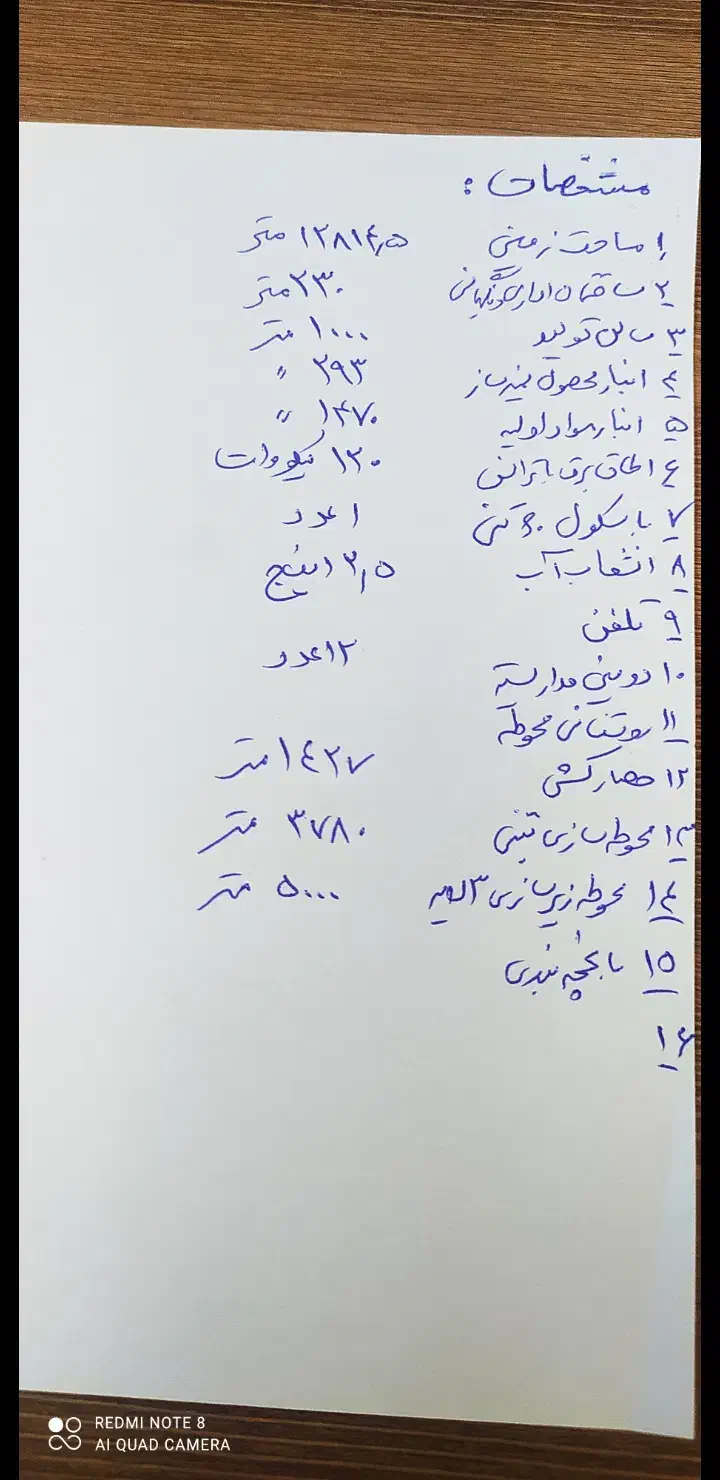 مشخصات :
۱ مساحت زمین ۱۲۸۱۴٫۵ متر
۲ ساختمان اداری و نگهبانی ۲۳۰ متر
۳ سالن تولید ۱۰۰۰ متر
۴ انبار محصول نیمه باز ۲۹۳ "
۵ انبار مواد اولیه ۱۴۷۰ "
۶ اطاق برق با ترانس ۱۲۰ کیلووات
۷ باسکول ۶۰ تنی ۱ عدد
۸ انشعاب آب ۳٫۵ اینچ
۹ تلفن
۱۰ دوربین مداربسته ۱۲ عدد
۱۱ روشنائی محوطه
۱۲ حصارکشی ۱۴۲۷ متر
۱۳ محوطه سازی بتنی ۳۷۸۰ متر
۱۴ محوطه زیرسازی ۳ لایه ۵۰۰۰ متر
۱۵ باغچه بندی
۱۶
REDMI NOTE 8
AI QUAD CAMERA